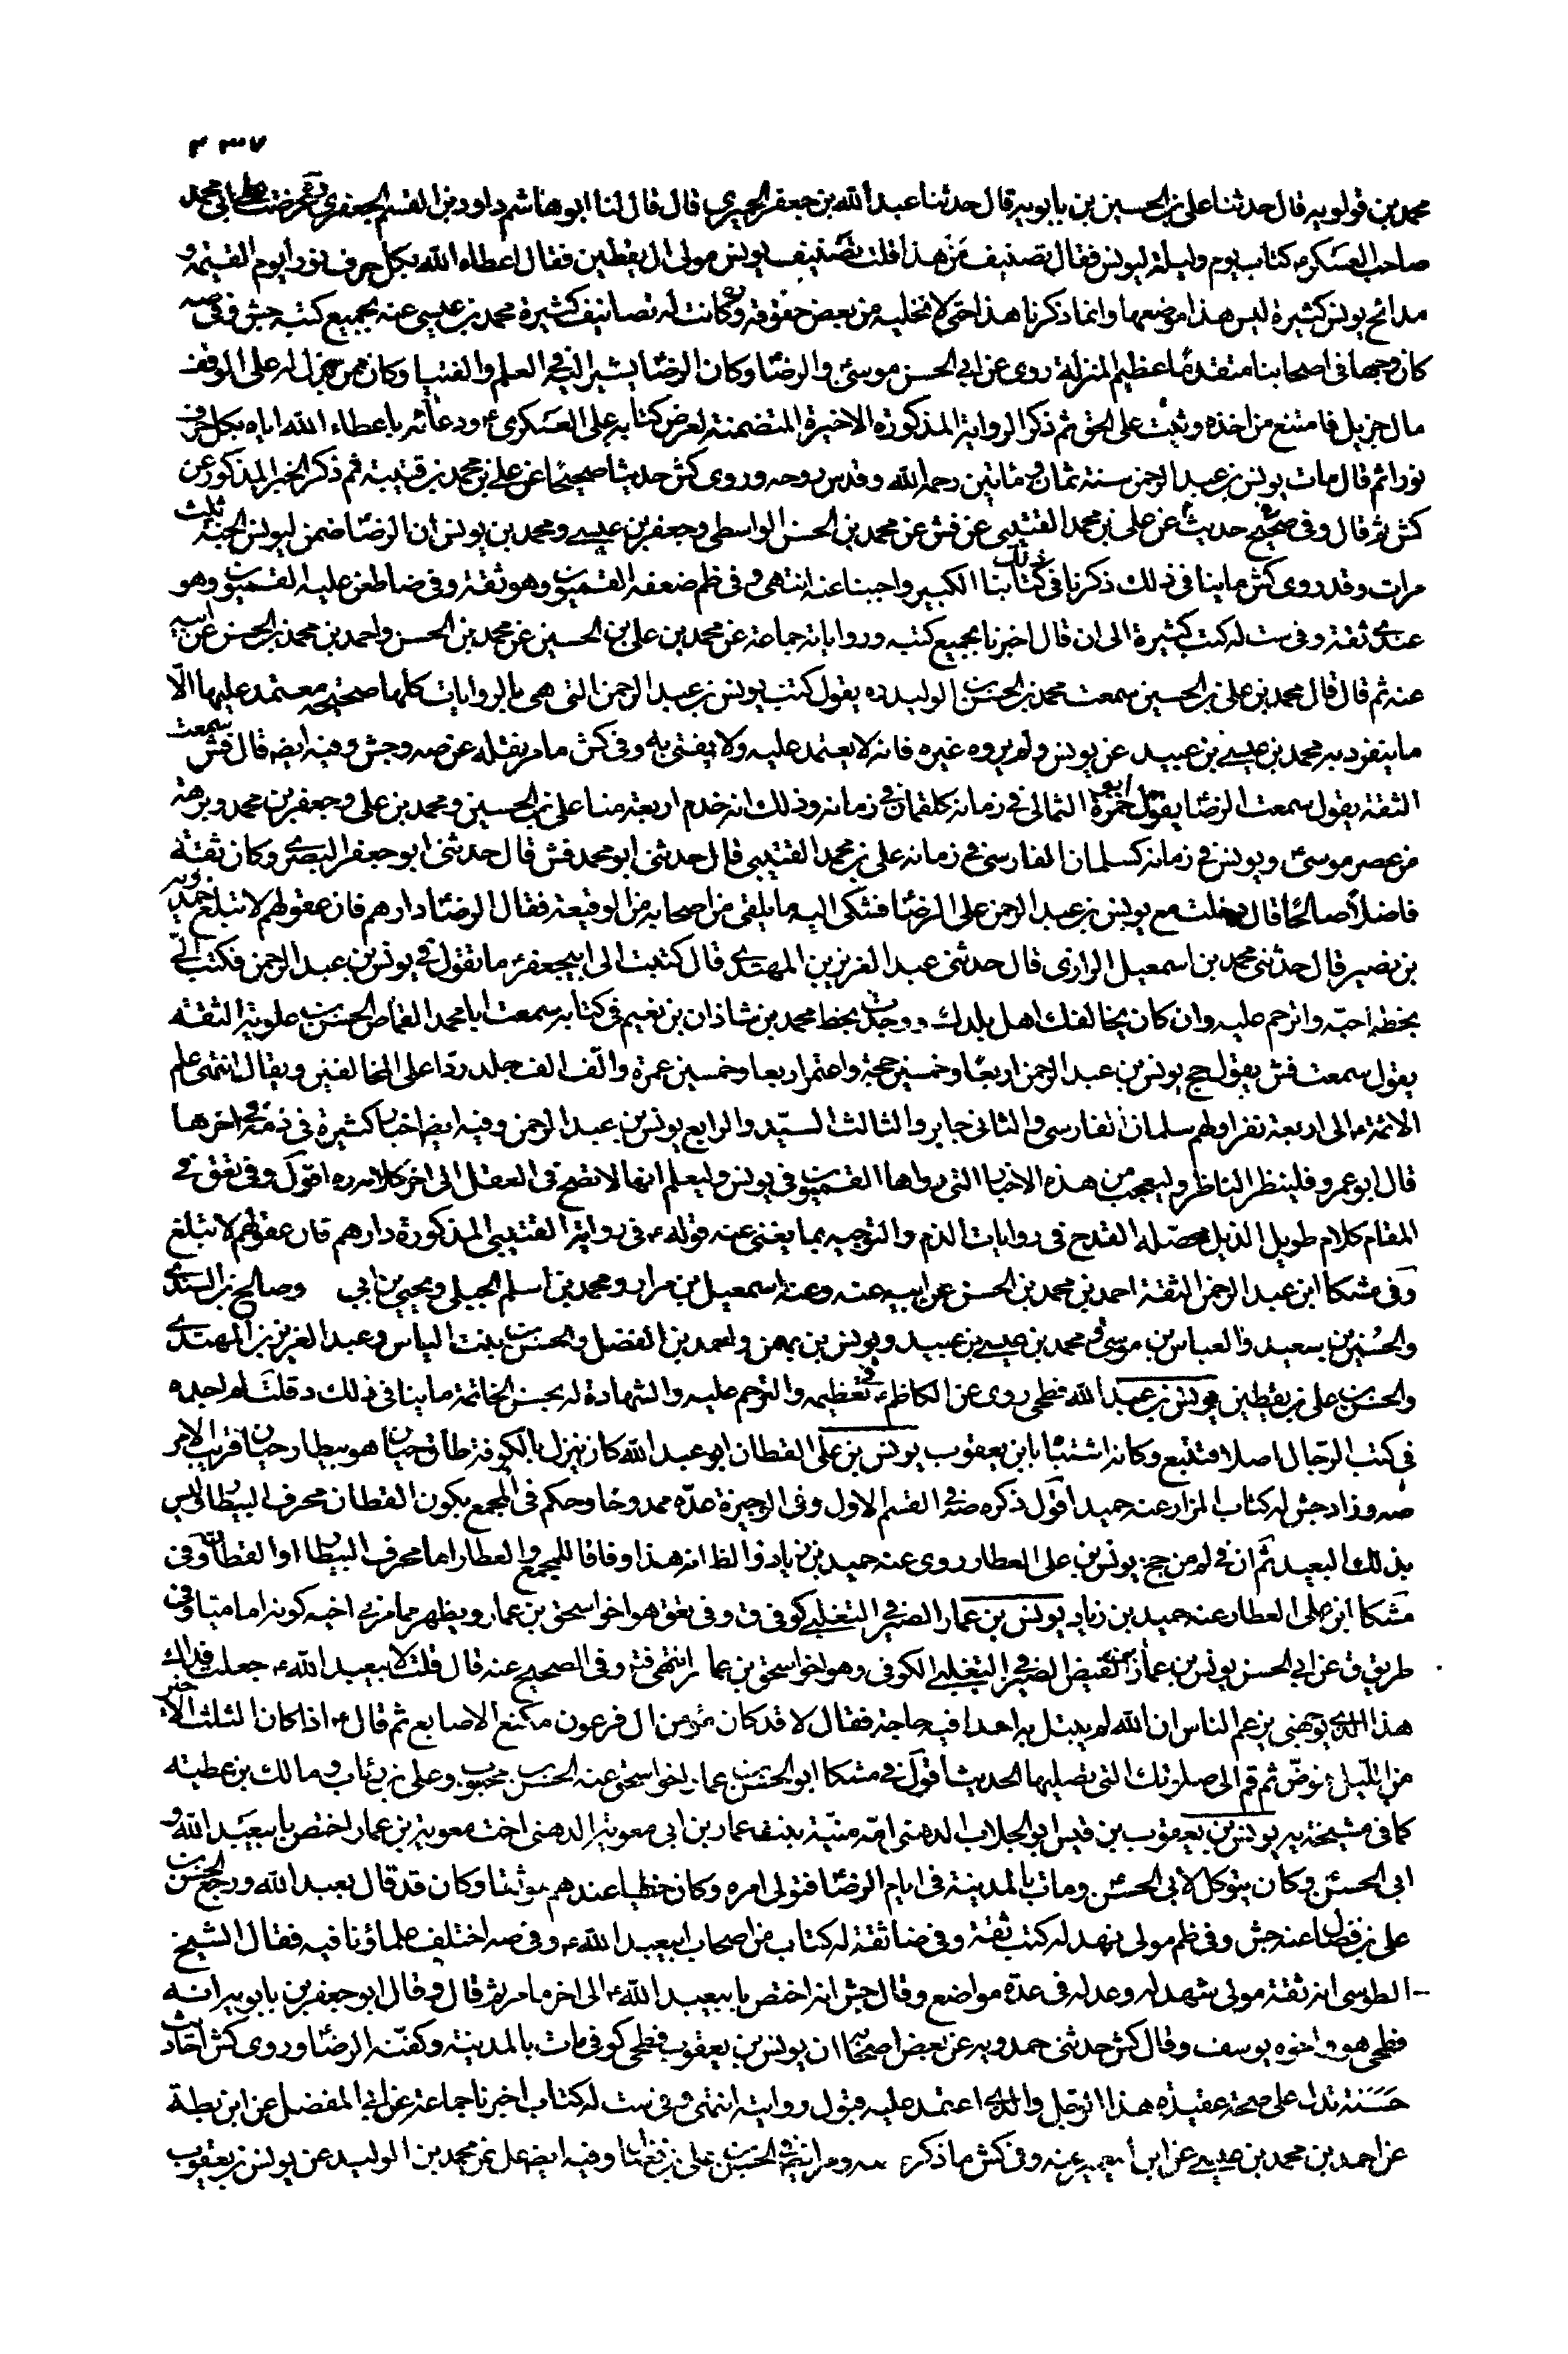 ٤٣٧
محمد بن قولويه قال حدثنا علي بن الحسين بن بابويه قال حدثنا عبد الله بن جعفر الحميري قال قال لنا ابو هاشم داود بن القسم الجعفري ره عرضت على ابي محمد
صاحب العسكر ع كتاب يوم وليلة ليونس فقال تصنيف من هذا قلت تصنيف يونس مولى ال يقطين فقال اعطاه الله بكل حرف نورا يوم القيمة و
مدائح يونس كثيرة ليس هذا موضعها وانما ذكرنا هذا حتى لا نخليه من بعض حقوقه ره وكانت له تصانيف كثيرة محمد بن عيسى عنه بجميع كتبه جش وفي صه
كان وجها في اصحابنا متقدما عظيم المنزلة روى عن ابي الحسن موسى ع والرضا ع وكان الرضا ع يشير اليه في العلم والفتيا وكان ممن بذل له على الوقف
مال جزيل فامتنع من اخذه وثبت على الحق ثم ذكر الرواية المذكورة الاخيرة المتضمنة لعرض كتابه على العسكري ع ودعائه باعطاء الله اياه بكل حرف
نورا ثم قال مات يونس بن عبد الرحمن سنة ثمان ومائتين رحمه الله وقدس روحه وروى كش حديثا صحيحا عن علي بن محمد بن قتيبة ثم ذكر الخبر المذكور عن
كش ثم قال وفي حديث صحيح عن علي بن محمد القتيبي عن فش عن محمد بن الحسن الواسطي وجعفر بن عيسى ومحمد بن يونس ان الرضا ع ضمن ليونس الجنة ثلث
مرات وقد روى كش ما ينافي ذلك ذكرنا في كتابنا الكبير واجبنا عنه انتهى وفي ظم ضعفه القميون وهو ثقة وفي ضا طعن عليه القميون وهو
عندي ثقة وفي ست له كتب كثيرة الى ان قال اخبرنا بجميع كتبه ورواياته جماعة عن محمد بن علي بن الحسين عن محمد بن الحسن واحمد بن محمد بن الحسن عن ابيه
عنه ثم قال قال محمد بن علي بن الحسين سمعت محمد بن الحسن بن الوليد ره يقول كتب يونس بن عبد الرحمن التي هي بالروايات كلها صحيحة معتمد عليها الا
ما ينفرد به محمد بن عيسى بن عبيد عن يونس ولم يروه غيره فانه لا يعتمد عليه ولا يفتى به وفي كش ما مر بنقله عن صه وجش وفيه ايضه قال فش سمعت
الثقة يقول سمعت الرضا ع يقول ابو حمزة الثمالي في زمانه كلقمان في زمانه وذلك انه خدم اربعة منا علي بن الحسين ومحمد بن علي وجعفر بن محمد وبرهة
من عصر موسى ع ويونس في زمانه كسلمان الفارسي في زمانه علي بن محمد القتيبي قال حدثني ابو محمد فش قال حدثني ابو جعفر البصري وكان ثقة
فاضلا صالحا قال دخلت مع يونس بن عبد الرحمن على الرضا ع فشكى اليه ما يلقى من اصحابه من الوقيعة فقال الرضا ع دارهم فان عقولهم لا تبلغ حمدويه
بن نصير قال حدثني محمد بن اسمعيل الرازي قال حدثني عبد العزيز بن المهتدي قال كتبت الى ابيجعفر ع ما تقول في يونس بن عبد الرحمن فكتب الي
بخطه احبه واترحم عليه وان كان يخالفك اهل بلدك ووجدت بخط محمد بن شاذان بن نعيم في كتابه سمعت ابا محمد القماص الحسن بن علوية الثقة
يقول سمعت فش يقول حج يونس بن عبد الرحمن اربعا وخمسين حجة واعتمر اربعا وخمسين عمرة والف الف جلد ردا على المخالفين ويقال انتهى علم
الائمة ع الى اربعة نفر اولهم سلمان الفارسي والثاني جابر والثالث السيد والرابع يونس بن عبد الرحمن وفيه ايضه اخبار كثيرة في ذمه في اخرها
قال ابو عمرو فلينظر الناظر وليعجب من هذه الاخبار التي رواها القميون في يونس وليعلم انها لا تصح في العقل الى اخر كلامه ره اقول وفي تعق في
المقام كلام طويل الذيل محصله القدح في روايات الذم والتوجيه بما يغني عنه قوله ع في رواية القتيبي المذكورة دارهم فان عقولهم لا تبلغ
وفي مشكا ابن عبد الرحمن الثقة احمد بن محمد بن الحسن عن ابيه عنه وعنه اسمعيل بن مرار ومحمد بن اسلم الجبلي ويحيى بن ابي وصالح بن السندي
والحسين بن سعيد والعباس بن موسى ومحمد بن عيسى بن عبيد ويونس بن بهمن واحمد بن الفضل والحسن بن بنت الياس وعبد العزيز بن المهتدي
والحسن بن علي بن يقطين يونس بن عبد الله فطحي روى عن الكاظم ع في تعظيمه والترحم عليه والشهادة له بحسن الخاتمة ما ينافي ذلك د قلت لم اجده
في كتب الرجال اصلا فتتبع وكانه اشتبه بابن يعقوب يونس بن علي القطان ابو عبد الله كان ينزل بالكوفة طاق حيان هو بيطار حيان قريب الامر
صه وزاد جش له كتاب المزار عنه حميد اقول ذكره ضه في القسم الاول وفي الوجيزة عده ممدوحا وحكم في المجمع بكون القطان محرف البيطار وليس
بذلك البعيد ثم ان في لم من جخ يونس بن علي العطار روى عنه حميد بن زياد والظ انه هذا وفاقا للمجمع والعطار اما محرف البيطار او القطان وفي
مشكا ابن علي العطار عنه حميد بن زياد يونس بن عمار الصيرفي التغلبي كوفي ق وفي تعق هو اخو اسحق بن عمار ويظهر مما مر في اخيه كونه اماميا وفي
طريق ق عن ابي الحسن يونس بن عمار بن الفيض الصيرفي التغلبي الكوفي وهو اخو اسحق بن عمار انتهى فت وفي الصحيح عنه قال قلت لابيعبد الله ع جعلت فداك
هذا الذي بوجهي يزعم الناس ان الله لم يبتل به احدا فيه حاجة فقال لا قد كان مؤمن ال فرعون مكنع الاصابع ثم قال ع اذا كان الثلث الاخير
من الليل فتوض ثم قم الى صلوتك التي تصليها الحديث اقول في مشكا ابو الحسن بن عمار اخو اسحق عنه الحسن بن محبوب وعلي بن رئاب ومالك بن عطية
كما في مشيخة يه يونس بن يعقوب بن قيس ابو الجلاب الدهني امه منية بنت عمار بن ابي معوية الدهني اخت معوية بن عمار اختص بابيعبد الله ع و
ابي الحسن ع وكان يتوكل لابي الحسن ع ومات بالمدينة في ايام الرضا ع فتولى امره وكان حظيا عندهم موثقا وكان قد قال بعبد الله ورجع الحسن بن
علي بن فضال عنه جش وفي ظم مولى نهد له كتب ثقة وفي ضا ثقة له كتاب من اصحاب ابيعبد الله ع وفي صه اختلف علماؤنا فيه فقال الشيخ
الطوسي انه ثقة مولى شهد له وعدله في عدة مواضع وقال جش انه اختص بابيعبد الله ع الى اخر ما مر ثم قال وقال ابو جعفر بن بابويه انه
فطحي هو واخوه يوسف وقال كش حدثني حمدويه عن بعض اصحابنا ان يونس بن يعقوب فطحي كوفي مات بالمدينة وكفنه الرضا ع وروى كش احاديث
حسنة تدل على صحة عقيدة هذا الرجل والذي اعتمد عليه قبول روايته انتهى وفي ست له كتاب اخبرنا جماعة عن ابي المفضل عن ابن بطة
عن احمد بن محمد بن عيسى عن ابن عنه وفي كش ما ذكره صه ومر ايضه في الحسن بن علي بن فضال وفيه ايضه علي عن محمد بن الوليد عن يونس بن يعقوب